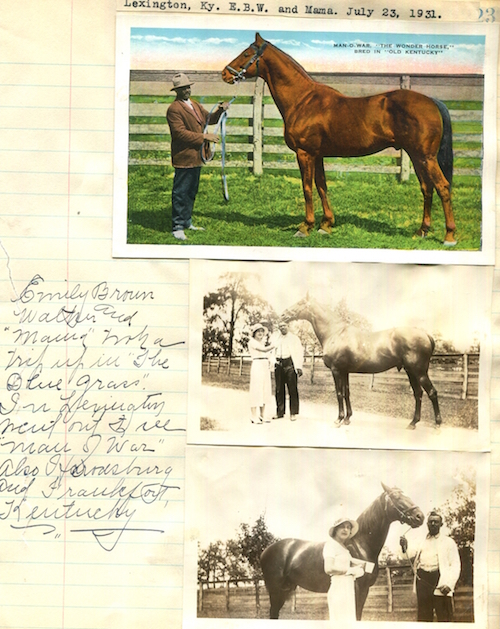 Lexington, Ky. E.B.W. and Mama. July 23, 1931.
23
MAN-O-WAR, "THE WONDER HORSE,"
BRED IN "OLD KENTUCKY"
Emily Brown
Walton and
"Mama" took a
trip up in "The
Blue grass."
In Lexington
went out to see
"Man O War"
Also Harrodsburg
and Frankfort,
Kentucky